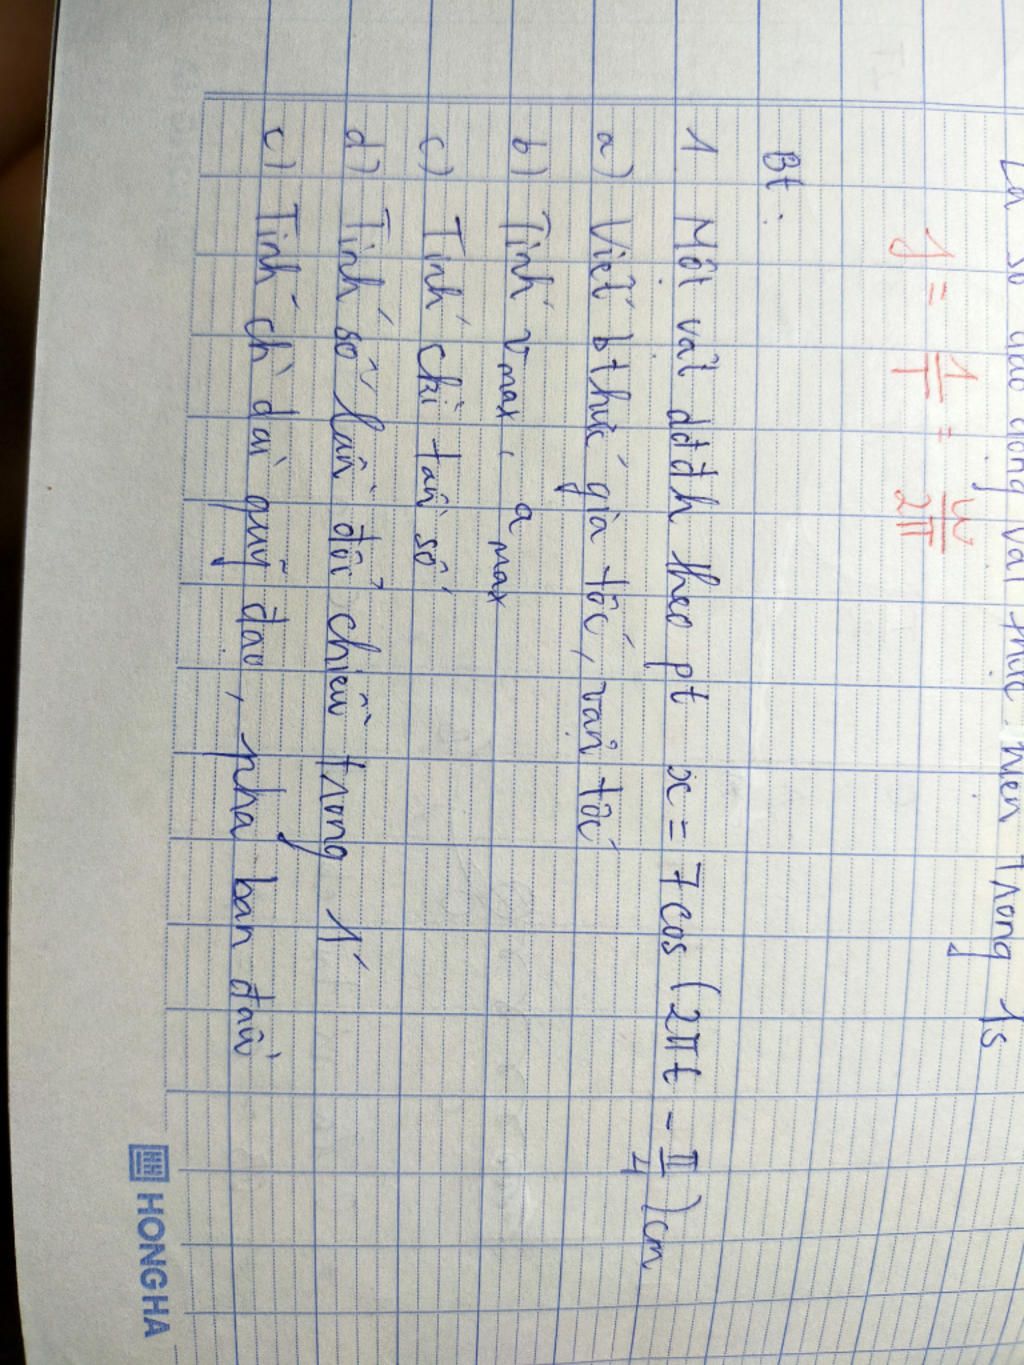 Là số dao động vật thực hiện trong 1s
f = 1/T = ω/2π
Bt:
1 Một vật dđđh theo pt x = 7cos (2πt - π/4) cm
a) Viết bthức gia tốc, vận tốc
b) Tính vmax, amax
c) Tính chì tần số
d) Tính số lần đổi chiều trong 1'
c) Tính ch` dài quỹ đạo, pha ban đầu
HONG HA